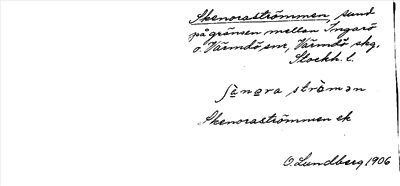 Skenoraströmmen, sund
på gränsen mellan Ingarö
o. Värmdö snr, Värmdö skg,
Stockh. l.
ström
Skenoraströmmen ek
O. Lundberg 1906